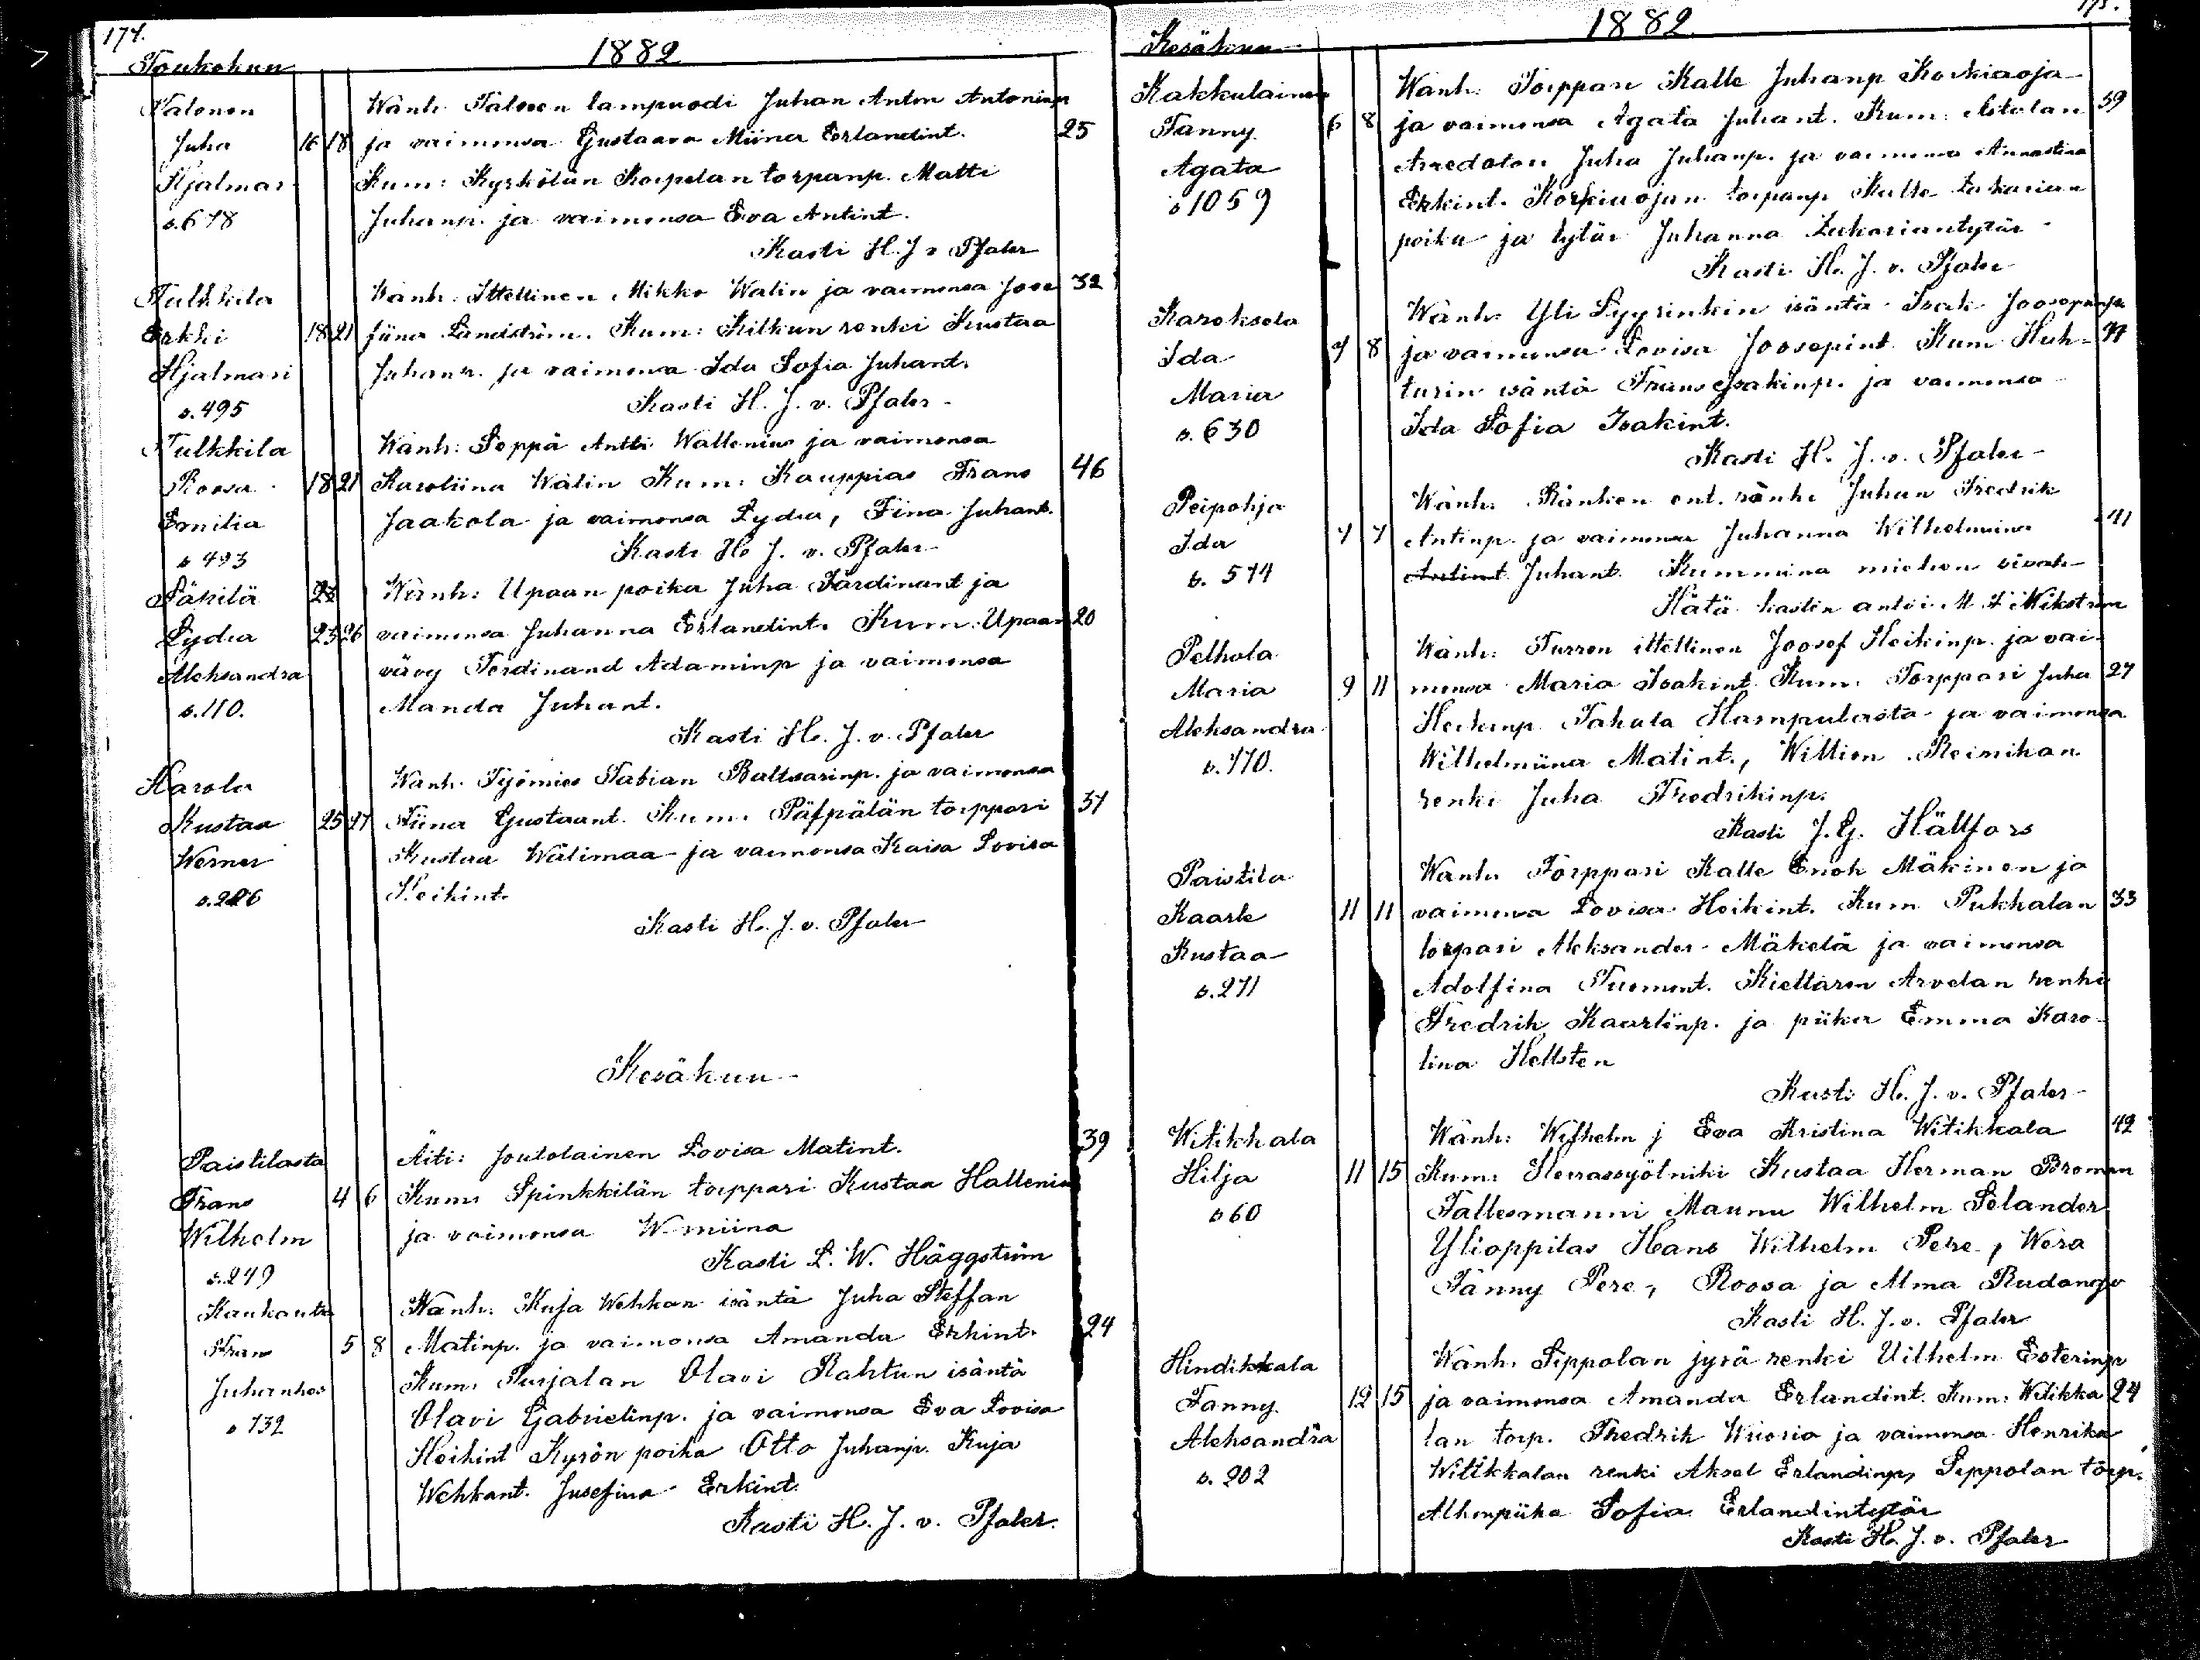 174.
1882
Toukokuu
Talonen Wanh. Talosen lampuodi Juhan Anton Antoninp
Juha 16 18 ja vaimonsa Gustaava Miina Erlandint. 25
Hjalmar Kum: Kyrkölän Korpelan torpanp. Matti
s. 678 Juhanp. ja vaimonsa Eva Antint.
Kasti H. J. v Pfaler
Tulkkila Wanh. Ittellinen Mikko Walin ja vaimonsa Jose 32
Erkki 18 21 fiina Landström. Kum: Kilkun renki Kustaa
Hjalmari Juhanp. ja vaimonsa Ida Sofia Juhant.
s. 495 Kasti H. J. v. Pfaler
Tulkkila Wanh: Seppä Antti Wallenius ja vaimonsa
Roosa 18 21 Karoliina Wälin Kum: Kauppias Frans 46
Emilia Jaakola ja vaimonsa Lydia, Fina Juhant.
s 493 Kasti H. J. v. Pfaler
Säkilä Wanh: Upaan poika Juha Färdinant ja
Lydia 25 26 vaimonsa Juhanna Erlandint. Kum. Upaan 20
Aleksandra vävy Ferdinand Adaminp ja vaimonsa
s. 110. Manda Juhant.
Kasti H. J. v. Pfaler
Karola Wanh. Työmies Fabian Baltsarinp. ja vaimonsa
Kustaa 25 27 Fiina Gustaant. Kum: Päfpälän torppari 37
Werner Kustaa Wälimaa ja vaimonsa Kaisa Lovisa
s. 226 Heikint.
Kasti H. J. v. Pfaler
Kesäkuu
Paistilasta Äiti: Joutolainen Lovisa Matint. 39
Frans 4 6 Kum: Spinkkilän torppari Kustaa Hallenius
Wilhelm ja vaimonsa W-miina
s. 249 Kasti L. W. Häggström
Kaukanta Wanh: Kuja Wehkan isäntä Juha Steffan
Frans 5 8 Matinp. ja vaimonsa Amanda Erkint. 24
Juhannes Kum: Purjalan Olavi Rahtun isäntä
s 732 Olavi Gabrielinp. ja vaimonsa Eva Lovisa
Heikint Kyrön poika Otto Juhanp. Kuja
Wehkant. Jusefina Erkint.
Kasti H. J. v. Pfaler.
175.
1882
Kesäkuu
Kakkulainen Wanh: Torppari Kalle Juhanp Korkiaoja
Fanny 6 8 ja vaimonsa Agata Juhant. Kum: Astolan 39
Agata Juha Juhanp. ja vaimonsa Annastina
s 1059 Erkint. Korkiaojan torpanp Kalle Sakarian
poika ja tytär Juhanna Zakariantytär
Kasti H. J. v. Pfaler
Karoksela Wanh: Yli Lyyrinkin isäntä Isak Joosepinp
Ida 7 8 ja vaimonsa Lovisa Joosepint. Kum Huh- 44
Maria turin isäntä Frans Isakinp. ja vaimonsa
s. 630 Ida Sofia Isakint.
Kasti H. J. v. Pfaler
Peipohja Wanh: Ränken ent. renki Juhan Fredrik
Ida 7 7 Antinp. ja vaimonsa Juhanna Wilhelmiina 41
s. 574 Antint Juhant. Kummina miehen
Hätä kastin antoi M. A. Wikström
Pelhola Wanh: Turron ittellinen Joosef Heikinp. ja vai-
Maria 9 11 monsa Maria Isakint. Kum: Torppari Juha 27
Aleksandra Heikinp. Takala Harnpulasta ja vaimonsa
s. 770. Wilhelmiina Matint., Willion Reinikan
renki Juha Fredrikinp.
Kasti J. G. Hällfors
Paistila Wanh: Torppari Kalle Enok Mäkinen ja
Kaarle 11 11 vaimonsa Lovisa Heikint. Kum Pukkalan 33
Kustaa torpari Aleksander Mäkelä ja vaimonsa
s. 271 Adolfina Tuomont. Kiettaren Arvelan renki
Fredrik Kaarlinp. ja piika Emma Karo-
lina Hellsten
Kasti H. J. v. Pfaler
Witikkala Wanh: Wilhelm j Eva Kristina Witikkala 42
Hilja 11 15 Kum: Herrassyötniki Kustaa Herman Broman
s 60 Fallesmanni Maunu Wilhelm Selander
Ylioppilas Hans Wilhelm Pere, Wera
Fanny Pere, Roosa ja Alma Rudango
Kasti H. J. v. Pfaler
Hindikkala Wanh: Seppolan jyrä renki Uilhelm Esterinp
Fanny 12 15 ja vaimonsa Amanda Erlandint. Kum: Witikka 24
Aleksandra lan torp. Fredrik Wuorio ja vaimonsa Henrika
s. 202 Witikkalan renki Aksel Erlandinp, Seppolan torp.
Alhonpiika Sofia Erlandintytär
Kasti H. J. v. Pfaler